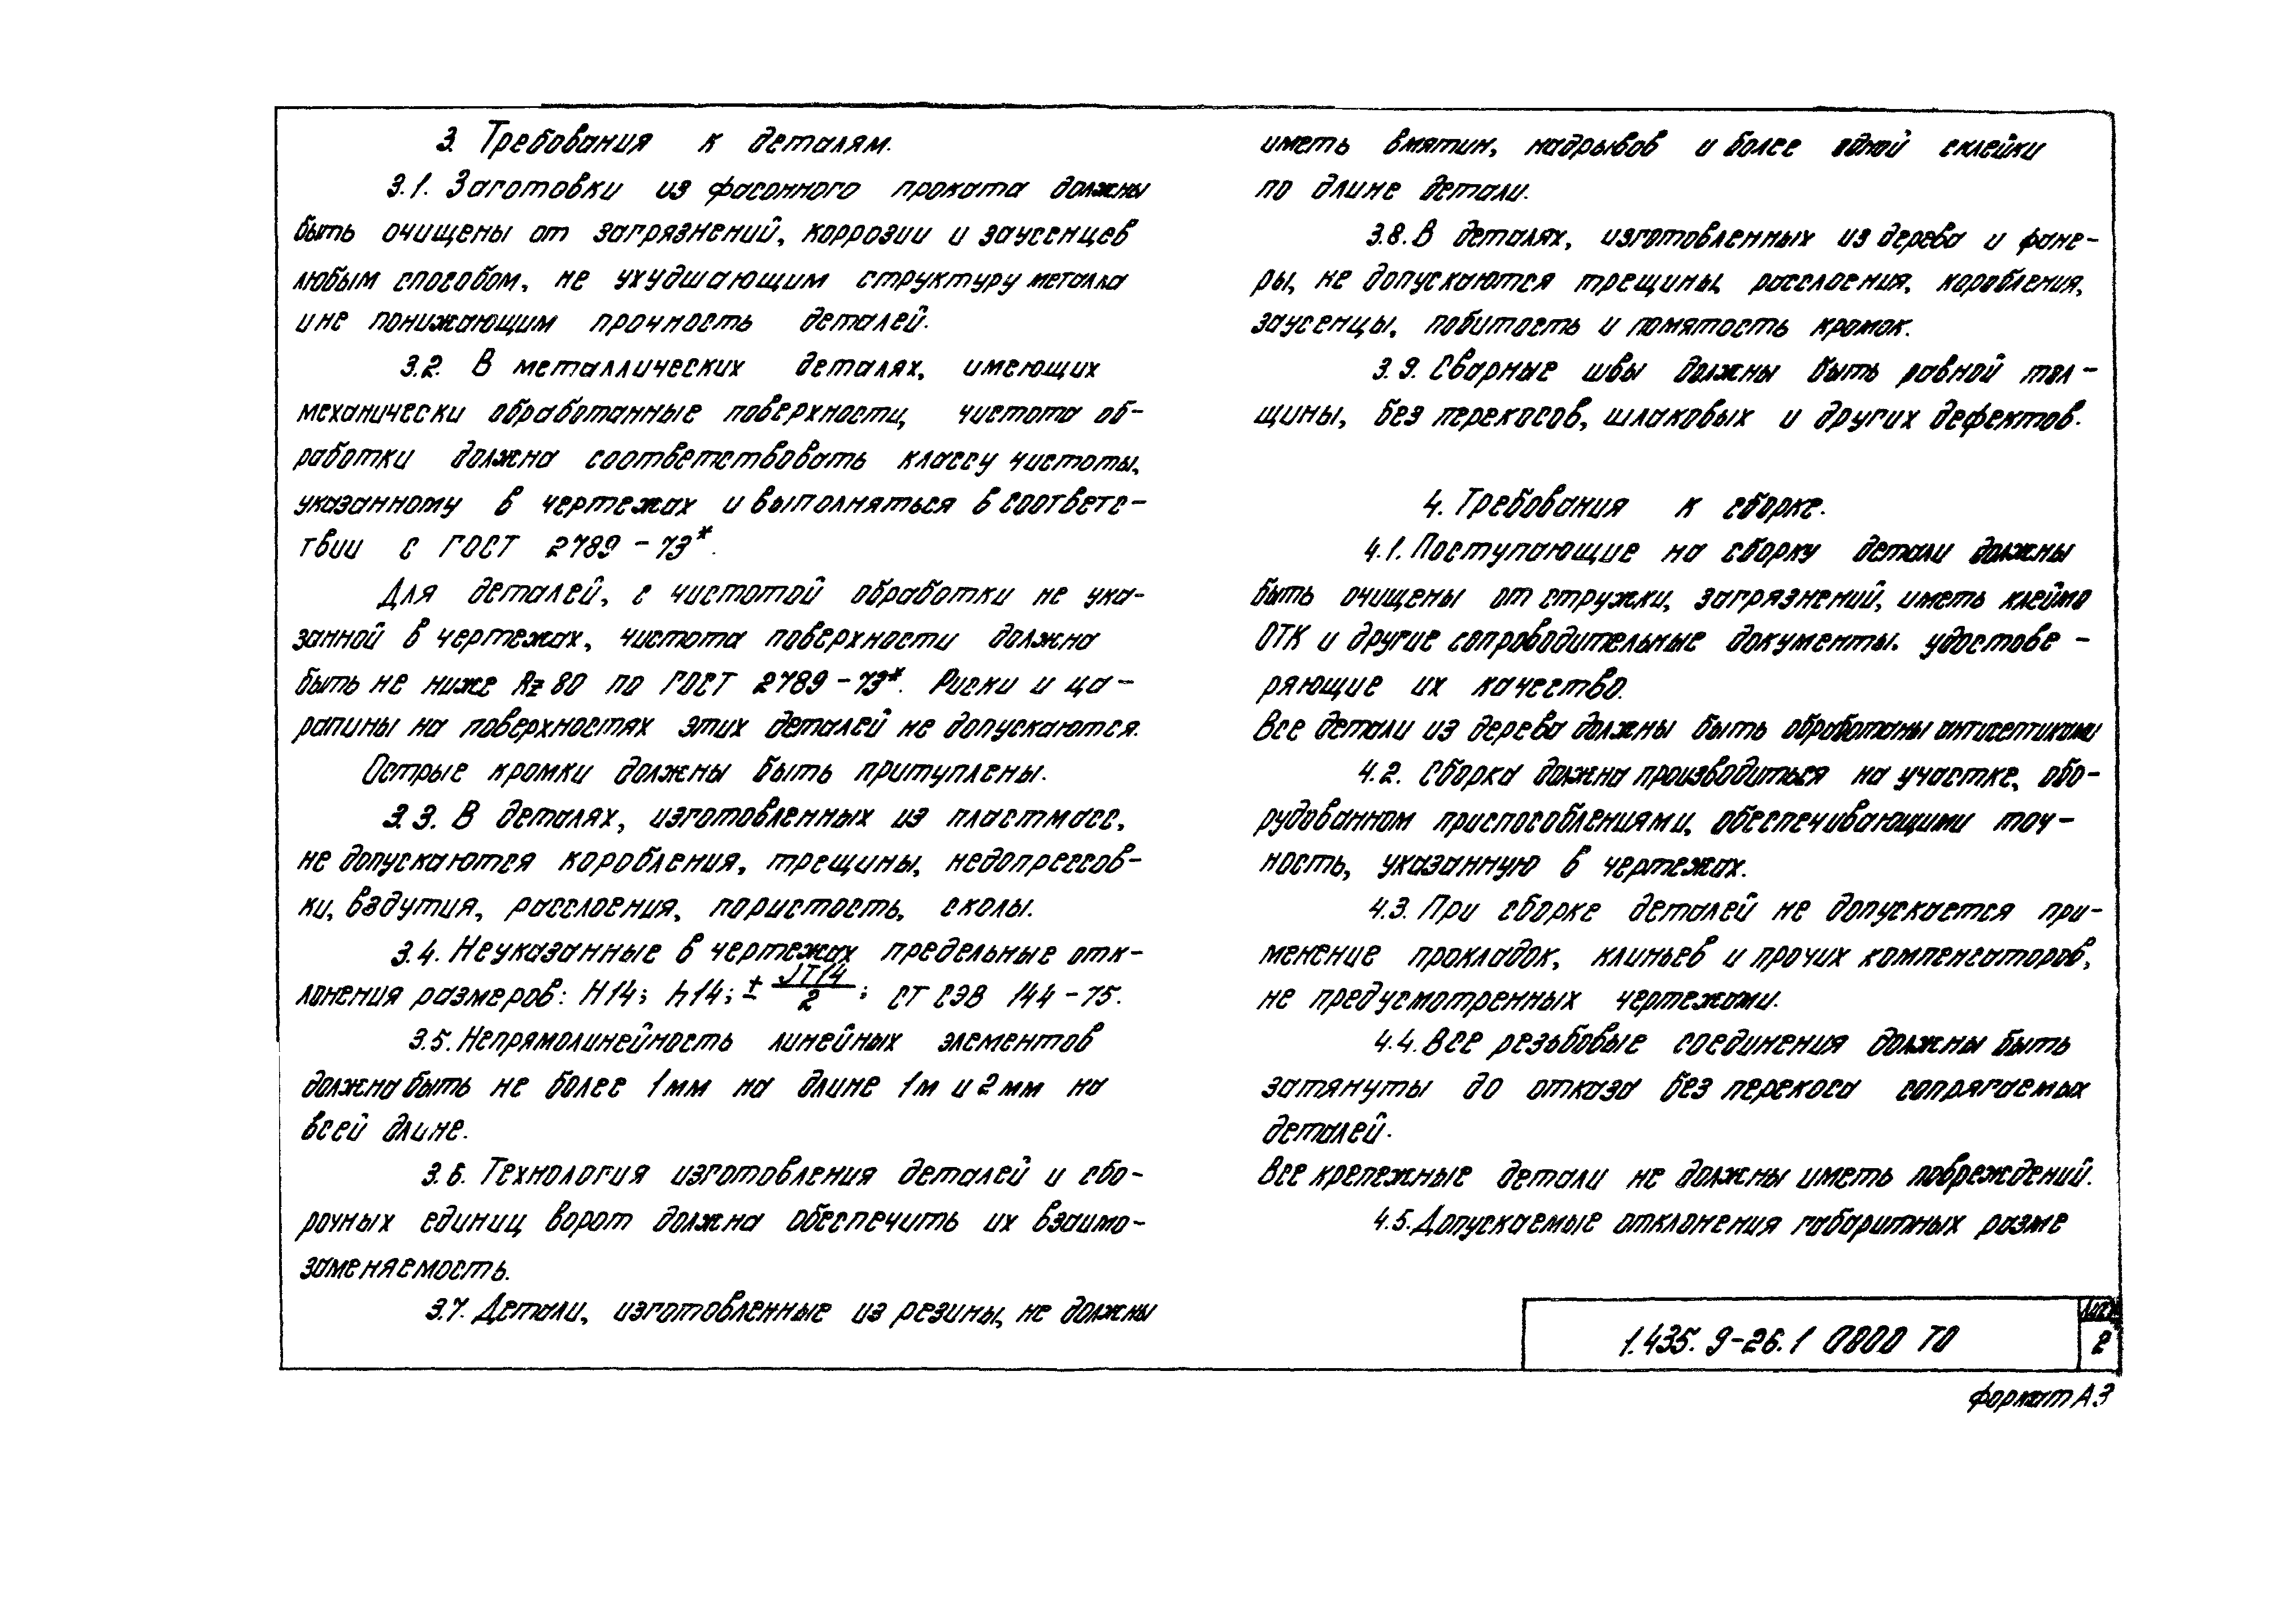 3. Требования к деталям.
3.1. Заготовки из фасонного проката должны
быть очищены от загрязнений, коррозии и заусенцев
любым способом, не ухудшающим структуру металла
и не понижающим прочность деталей.
3.2. В металлических деталях, имеющих
механически обработанные поверхности, чистота об-
работки должна соответствовать классу чистоты,
указанному в чертежах и выполняться в соответс-
твии с ГОСТ 2789-73*.
Для деталей, с чистотой обработки не ука-
занной в чертежах, чистота поверхности должна
быть не ниже Rz 80 по ГОСТ 2789-73*. Риски и ца-
рапины на поверхностях этих деталей не допускаются.
Острые кромки должны быть притуплены.
3.3. В деталях, изготовленных из пластмасс,
не допускаются коробления, трещины, недопрессов-
ки, вздутия, расслоения, пористость, сколы.
3.4. Неуказанные в чертежах предельные отк-
лонения размеров: H14; h14; ± JT14/2 ; СТ СЭВ 144-75.
3.5. Непрямолинейность линейных элементов
должна быть не более 1мм на длине 1м и 2мм на
всей длине.
3.6. Технология изготовления деталей и сбо-
рочных единиц ворот должна обеспечить их взаимо-
заменяемость.
3.7. Детали, изготовленные из резины, не должны
иметь вмятин, надрывов и более одной склейки
по длине детали.
3.8. В деталях, изготовленных из дерева и фане-
ры, не допускаются трещины, расслоения, коробления,
заусенцы, побитость и помятость кромок.
3.9. Сварные швы должны быть равной тол-
щины, без перекосов, шлаковых и других дефектов.
4. Требования к сборке.
4.1. Поступающие на сборку детали должны
быть очищены от стружки, загрязнений, иметь клеймо
ОТК и другие сопроводительные документы, удостове-
ряющие их качество.
Все детали из дерева должны быть обработаны антисептиками
4.2. Сборка должна производиться на участке, обо-
рудованном приспособлениями, обеспечивающими точ-
ность, указанную в чертежах.
4.3. При сборке деталей не допускается при-
менение прокладок, клиньев и прочих компенсаторов,
не предусмотренных чертежами.
4.4. Все резьбовые соединения должны быть
затянуты до отказа без перекоса сопрягаемых
деталей.
Все крепежные детали не должны иметь повреждений.
4.5. Допускаемые отклонения габаритных разме
1.435.9-26.1 0800 ТО
Лист
2
Формат А3